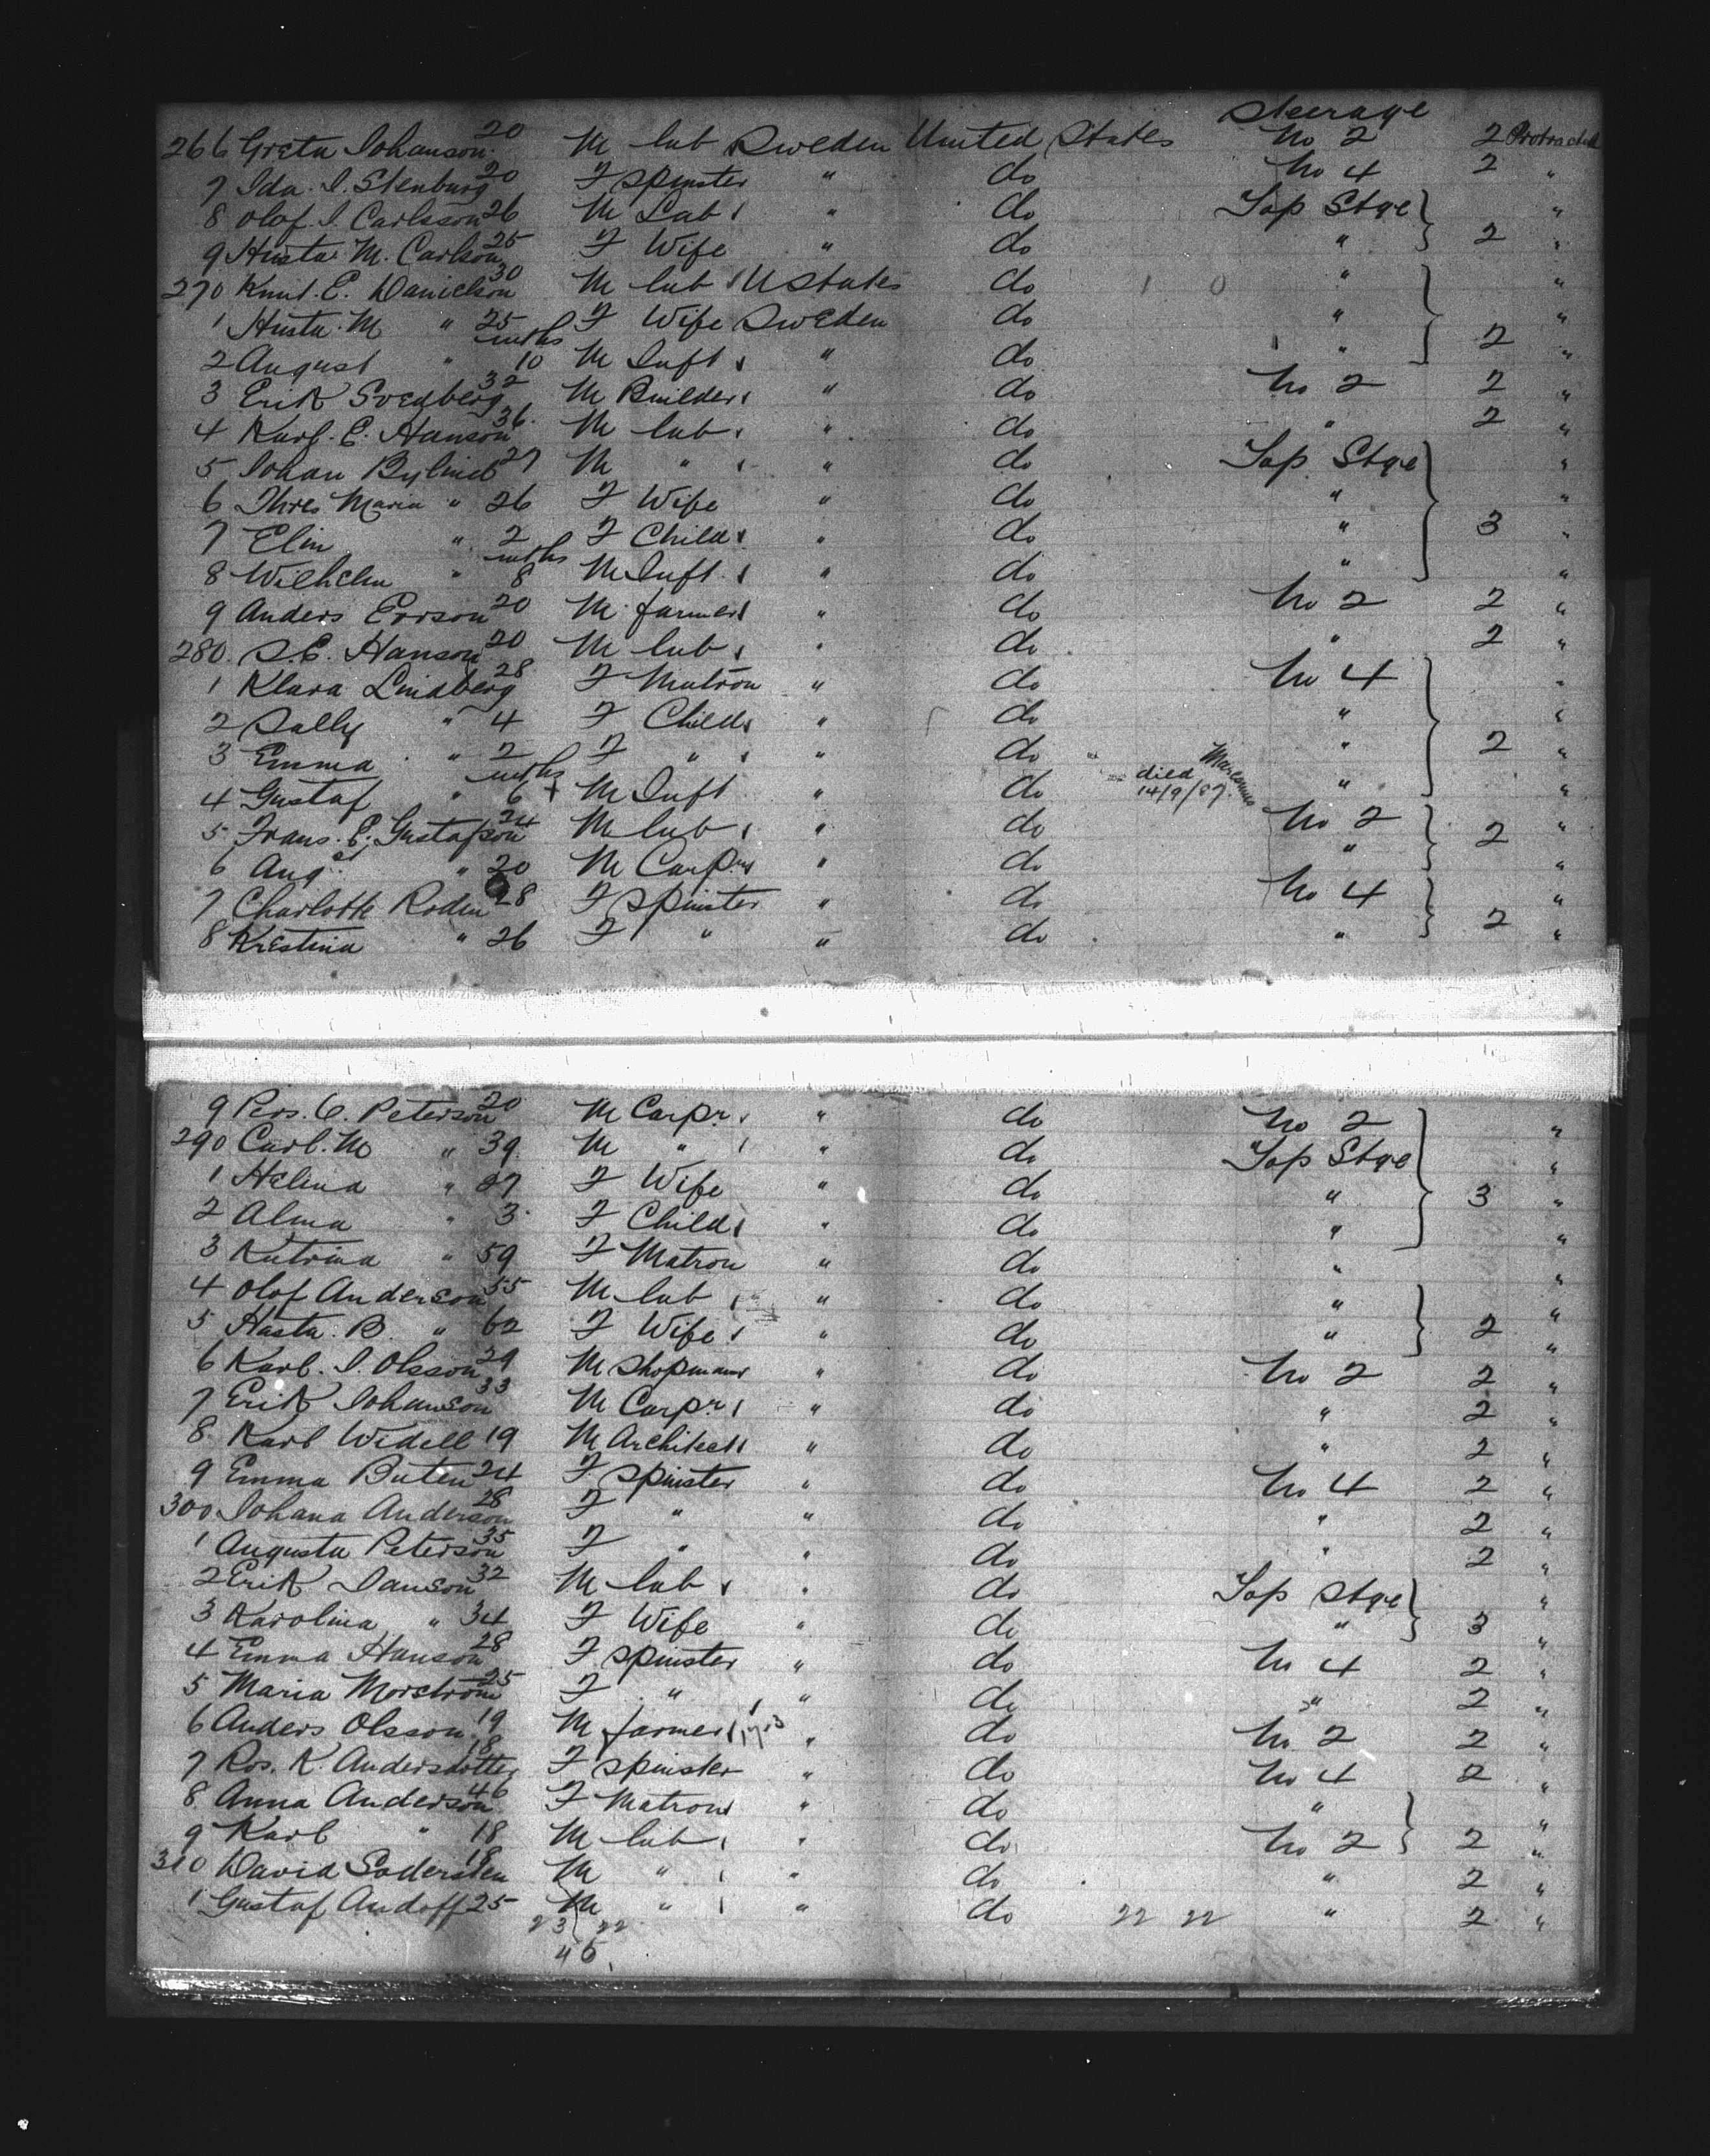 Steerage
266 Greta Johanson 20 M lab Sweden United States No 2 2 Protracted
7 Ida. I. Stenburg 20 F Spinster " do No 4 2 "
8 Olof I. Carlsson 26 M Lab " do Top Stge "
9 M. Carlson 25 F Wife " do " 2 "
270 Knut. E. Danielson 30 M lab U States do " "
1 M " 25 F Wife Sweden do " "
2 August " mths 10 M Inft " do " 2 "
3 Erik Svedberg 32 M Builder " do No 2 2 "
4 Karl. E. Hanson 36 M lab " do " 2 "
5 Johan 27 M " " do Top Stge "
6 Maria " 26 F Wife " do " "
7 Elin " 2 F Child " do " 3 "
8 Wilhelm " mths 8 M Inft " do " "
9 Anders Erson 20 M farmer " do No 2 2 "
280. S. E. Hanson 20 M lab " do " 2 "
1 Klara Lindberg 28 F Matron " do No 4 "
2 Sally " 4 F Child " do " "
3 Emma " 2 F " " do " 2 "
4 Gustaf " mths 6 + M Inft " do died 14/9/87 " "
5 Frans. E. Gustafson 24 M lab " do No 2 "
6 Augst " 20 M Carpr " do " 2 "
7 Charlotte Roden 28 F Spinster " do No 4 "
8 Krestina " 26 F " " do " 2 "
9 Pers. C. Peterson 20 M Carpr " do No 2 "
290 Carl. M " 39 M " " do Top Stge "
1 Helena " 27 F Wife " do " 3 "
2 Alma " 3 F Child " do " "
3 Katrina " 59 F Matron " do " "
4 Olof Anderson 55 M lab " do " "
5 Hasta. B " 62 F Wife " do " 2 "
6 Karl. I. Olsson 29 M Shopman " do No 2 2 "
7 Erik Johanson 33 M Carpr " do " 2 "
8 Karl Widell 19 M Architect " do " 2 "
9 Emma Buten 24 F Spinster " do No 4 2 "
300 Johana Anderson 28 F " " do " 2 "
1 Augusta Peterson 35 F " " do " 2 "
2 Erik Janson 32 M lab " do Top Stge "
3 Karolina " 34 F Wife " do " 3 "
4 Emma Hanson 28 F Spinster " do No 4 2 "
5 Maria Morstrom 25 F " " do " 2 "
6 Anders Olsson 19 M farmer " do No 2 2 "
7 Ros. K. Andersdotter 18 F Spinster " do No 4 2 "
8 Anna Anderson 46 F Matron " do " "
9 Karl " 18 M lab " do No 2 2 "
310 David Sodersten 18 M " " do " 2 "
1 Gustaf Andoff 25 M " " do 22 22 " 2 "
23 22
45